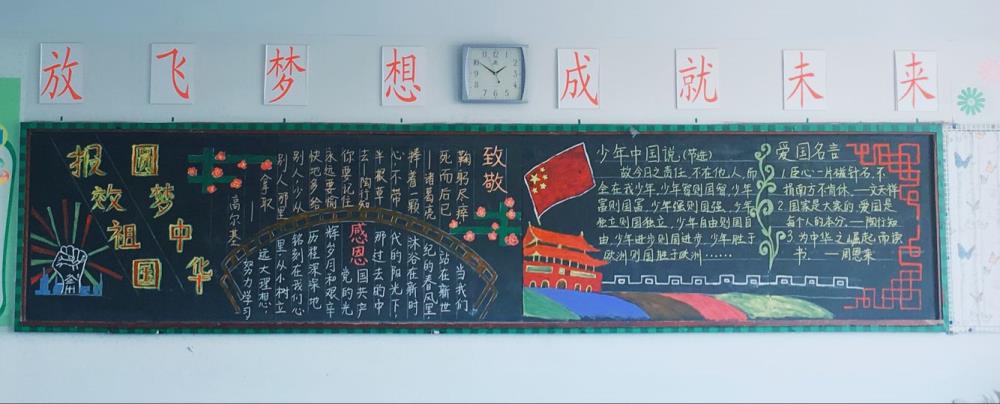 放飞梦想成就未来
报效祖国
圆梦中华
致敬
鞠躬尽瘁
死而后已
——诸葛亮
捧着一颗
心来不带
半根草
去——陶行知
你要记住
永远要愉
快地多给
别人少从
别人那里
拿取
——高尔基
当我们
站在新世
纪的春风里
沐浴在新时
代的阳光下
那过去的中
国共产
党的光
辉岁月和艰辛
历程深深地
铭刻在我们心
里从小树立
远大理想
努力学习
感恩
少年中国说(节选)
故今日之责任,不在他人,而
全在我少年。少年智则国智,少年
富则国富,少年强则国强,少年
独立则国独立,少年自由则国自
由,少年进步则国进步,少年胜于
欧洲则国胜于欧洲……
爱国名言
1.臣心一片磁针石,不
指南方不肯休。——文天祥
2.国家是大家的,爱国是
每个人的本分。——陶行知
3.为中华之崛起,而读
书。——周恩来